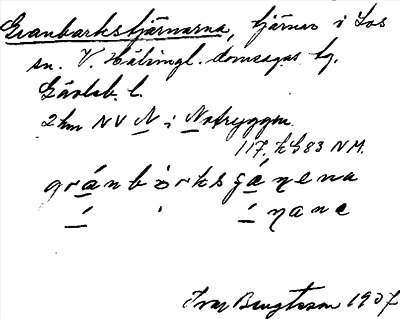 Granbarkstjärnarna, tjärnar i Los
sn. V. Hälsingl. domsagas tg.
Gävleb. l.
2 km NV N i Notryggen.
117. h G 83 N M.
gránbàrksʃánena
í ' í ŋane
Ivar Bengtsson 1937